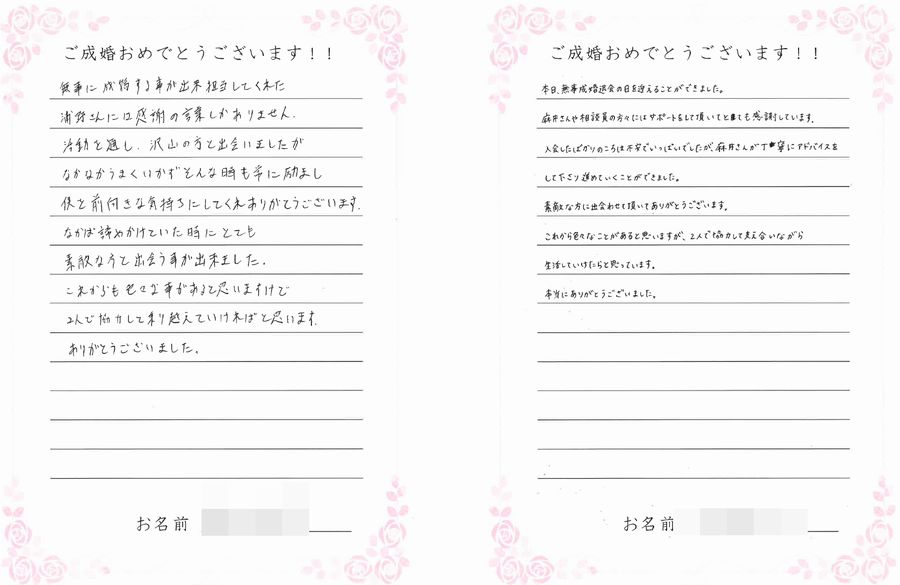 ご成婚おめでとうございます！！
無事に成婚する事が出来担当してくれた
浦野さんには感謝の言葉しかありません.
活動を通し、沢山の方と出会いましたが
なかなかうまくいかずそんな時も常に励まし
僕を前向きな気持ちにしてくれありがとうございます.
なかば諦めかけていた時にとても
素敵な方と出会う事が出来ました.
これからも色々な事があると思いますけど
2人で協力して乗り越えていければと思います.
ありがとうございました.
お名前
ご成婚おめでとうございます！！
本日、無事成婚退会の日を迎えることができました。
麻井さんや相談員の方々にはサポートをして頂いてとても感謝しています.
入会したばかりのころは不安でいっぱいでしたが、麻井さんが丁寧にアドバイスを
して下さり進めていくことができました。
素敵な方に出会わせて頂いてありがとうございます。
これから色々なことがあると思いますが、2人で協力して支え合いながら
生活していけたらと思っています。
本当にありがとうございました。
お名前